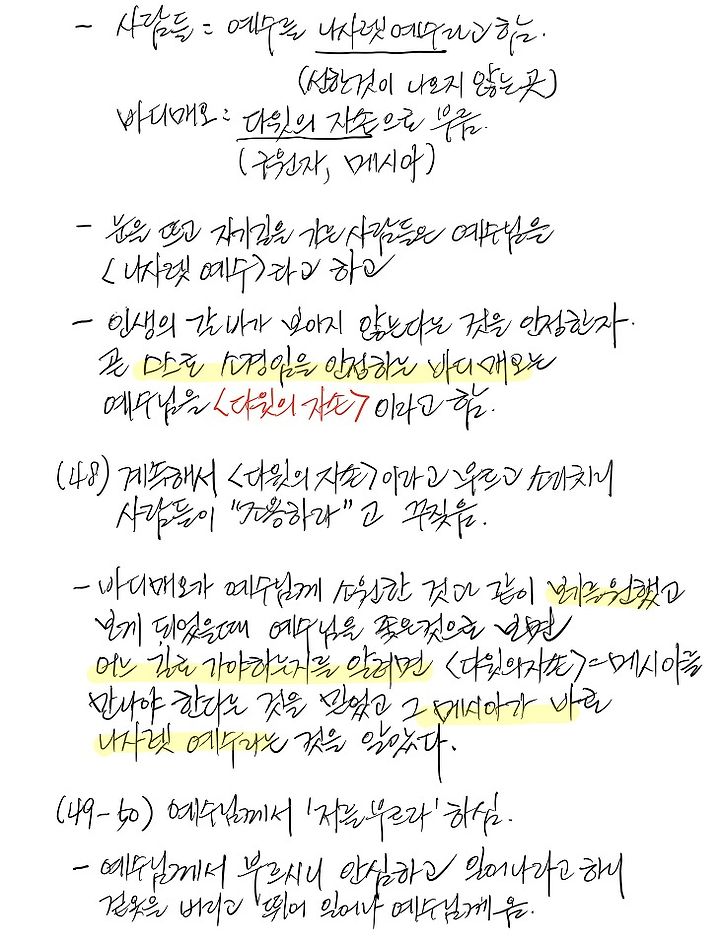 - 사람들 = 예수를 나사렛 예수라고 함.
(선한것이 나오지 않는 곳)
바디매오 = 다윗의 자손으로 부름.
(구원자, 메시아)
- 눈을 뜨고 자기길을 가는 사람들은 예수님을
<나사렛 예수>라고 하고
- 인생의 갈 바가 보이지 않는다는 것을 인정한자.
곧 스스로 소경임을 인정하는 바디매오는
예수님을 <다윗의 자손> 이라고 함.
(48) 계속해서 <다윗의 자손>이라고 부르고 소리치니
사람들이 "조용하라"고 꾸짖음.
- 바디매오가 예수님께 소원한 것과 같이 보기를 원했고
보게 되었을때 예수님을 좇은것으로 보면
어느 길로 가야하는지를 알려면 <다윗의자손>=메시아를
만나야 한다는 것을 믿었고 그 메시아가 바로
나사렛 예수라는 것을 알았다.
(49-50) 예수님께서 '저를 부르라' 하심.
- 예수님께서 부르시니 안심하고 일어나라고 하니
겉옷을 버리고 뛰어 일어나 예수님께 옴.